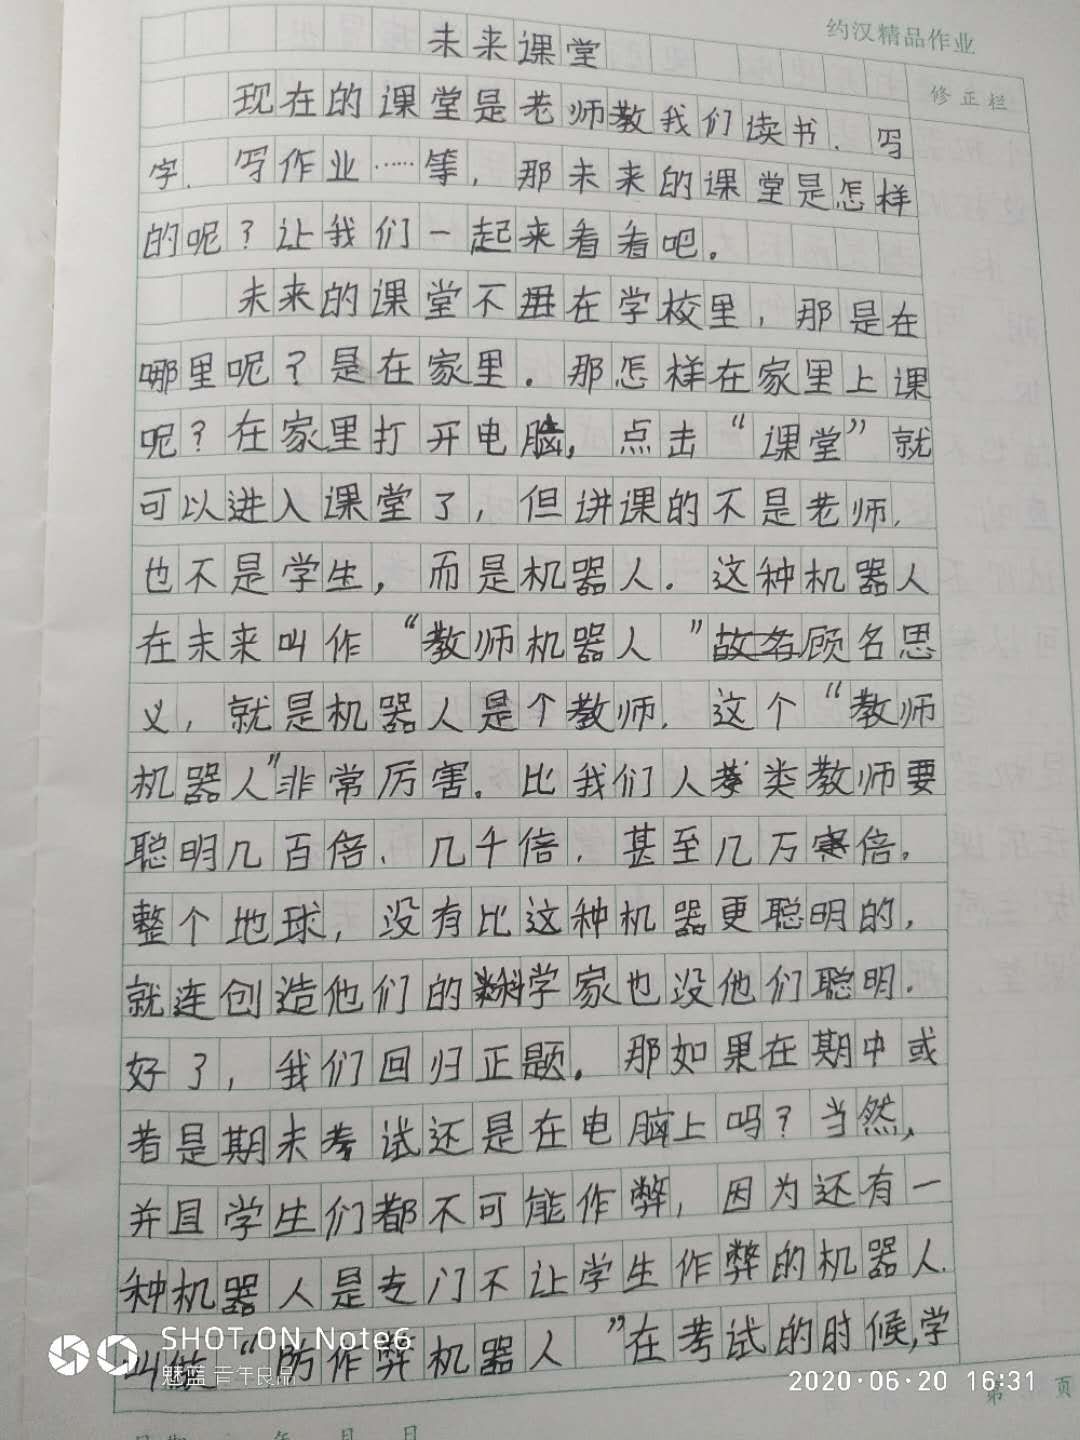 约汉精品作业
未来课堂
修正栏
现在的课堂是老师教我们读书、写
字、写作业……等，那未来的课堂是怎样
的呢？让我们一起来看看吧。
未来的课堂不再在学校里，那是在
哪里呢？是在家里。那怎样在家里上课
呢？在家里打开电脑，点击“课堂”就
可以进入课堂了，但讲课的不是老师，
也不是学生，而是机器人。这种机器人
在未来叫作“教师机器人”顾名思
义，就是机器人是个教师。这个“教师
机器人”非常厉害。比我们人类教师要
聪明几百倍、几千倍，甚至几万倍。
整个地球，没有比这种机器更聪明的，
就连创造他们的科学家也没他们聪明。
好了，我们回归正题。那如果在期中或
者是期末考试还是在电脑上吗？当然，
并且学生们都不可能作弊，因为还有一
种机器人是专门不让学生作弊的机器人.
叫做“防作弊机器人”在考试的时候,学
SHOT ON Note6
魅蓝 青年良品
2020·06·20 16:31
第 页
年 月 日